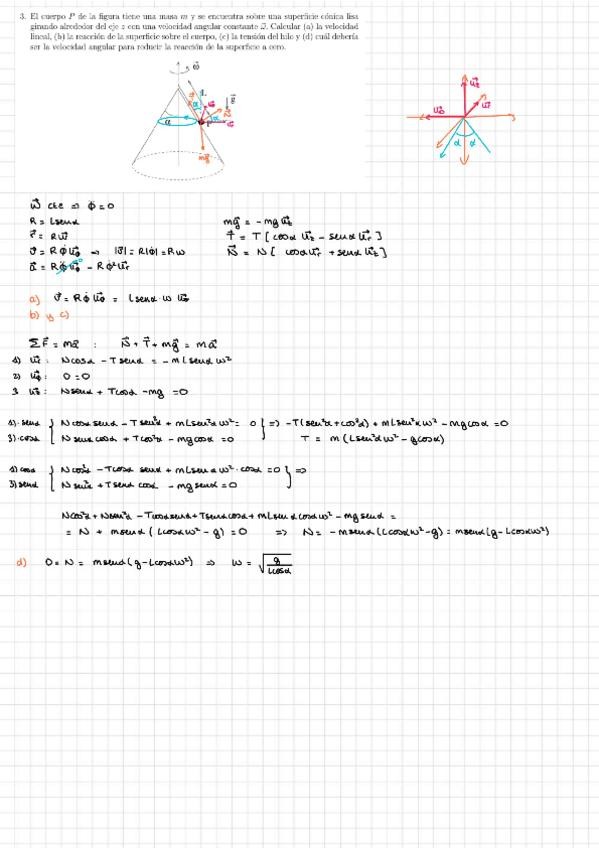 3. El cuerpo P de la figura tiene una masa m y se encuentra sobre una superficie cónica lisa
girando alrededor del eje z con una velocidad angular constante ω⃗. Calcular (a) la velocidad
lineal, (b) la reacción de la superficie sobre el cuerpo, (c) la tensión del hilo y (d) cuál debería
ser la velocidad angular para reducir la reacción de la superficie a cero.
ω⃗
α
mg⃗
u⃗z
u⃗r
α α
ω⃗ cte ⇒ φ̈ = 0
R = Lsenα
v⃗ = Rφ̇ u⃗φ → |v⃗| = R|φ̇| = Rω
a⃗ = Rφ̈ u⃗φ - Rφ̇² u⃗r
mg⃗ = -mg u⃗z
T⃗ = T [cosα u⃗z - senα u⃗r]
N⃗ = N [cosα u⃗r + senα u⃗z]
a) v⃗ = Rφ̇ u⃗φ = Lsenα·ω u⃗φ
b) y c)
ΣF⃗ = ma⃗ : N⃗ + T⃗ + mg⃗ = ma⃗
1) u⃗r: Ncosα - Tsenα = -mLsenα ω²
2) u⃗φ: 0=0
3 u⃗z: Nsenα + Tcosα - mg = 0
1)·senα { Ncosα senα - Tsen²α + mLsen²α ω² = 0 } => -T(sen²α+cos²α) + mLsen²α ω² - mgcosα = 0
3)·cosα { Nsenα cosα + Tcos²α - mgcosα = 0
T = m(Lsen²α ω² - gcosα)
1) cosα { Ncos²α - Tcosα senα + mLsenα ω²·cosα = 0 } =>
3) senα { Nsen²α + Tsenα cosα - mgsenα = 0
Ncos²α + Nsen²α - Tcosαsenα + Tsenαcosα + mLsenαcosαω² - mgsenα =
= N + msenα (Lcosαω² - g) = 0 => N = -msenα(Lcosαω²-g) = msenα(g-Lcosαω²)
d) 0 = N = msenα(g-Lcosαω²) ⇒ ω = √(g/Lcosα)